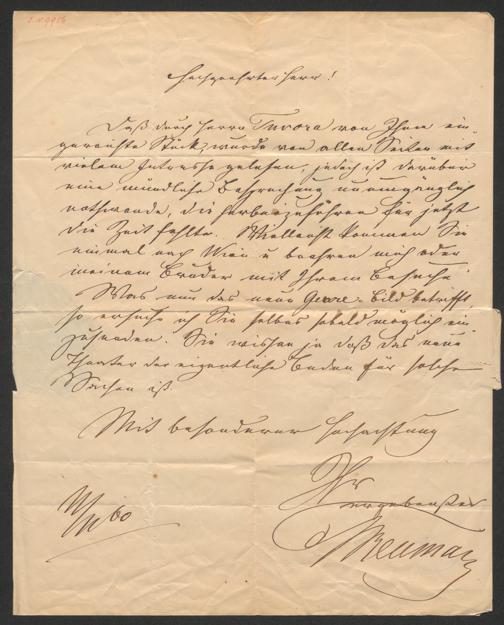 Hochgeehrter Herr!
Daß durch Herrn Tuvora von Ihnen ein-
gereichte Stück, wurde von allen Seiten mit
vielem Interesse gelesen, jedoch ist darüber
eine mündliche Besprechung unumgänglich
nothwendig, die herbeizuführen für jetzt
die Zeit fehlte. Vielleicht kommen Sie
einmal nach Wien u beehren mich oder
meinem Bruder mit Ihrem Besuche
Was nun das neue Genre-Bild betrifft
so ersuche ich Sie selbes sobald möglich ein
zusenden. Sie wissen ja daß das neue
Theater der eigentliche Boden für solche
Sachen ist.
Mit besonderer Hochachtung
Ihr
ergebenster
60